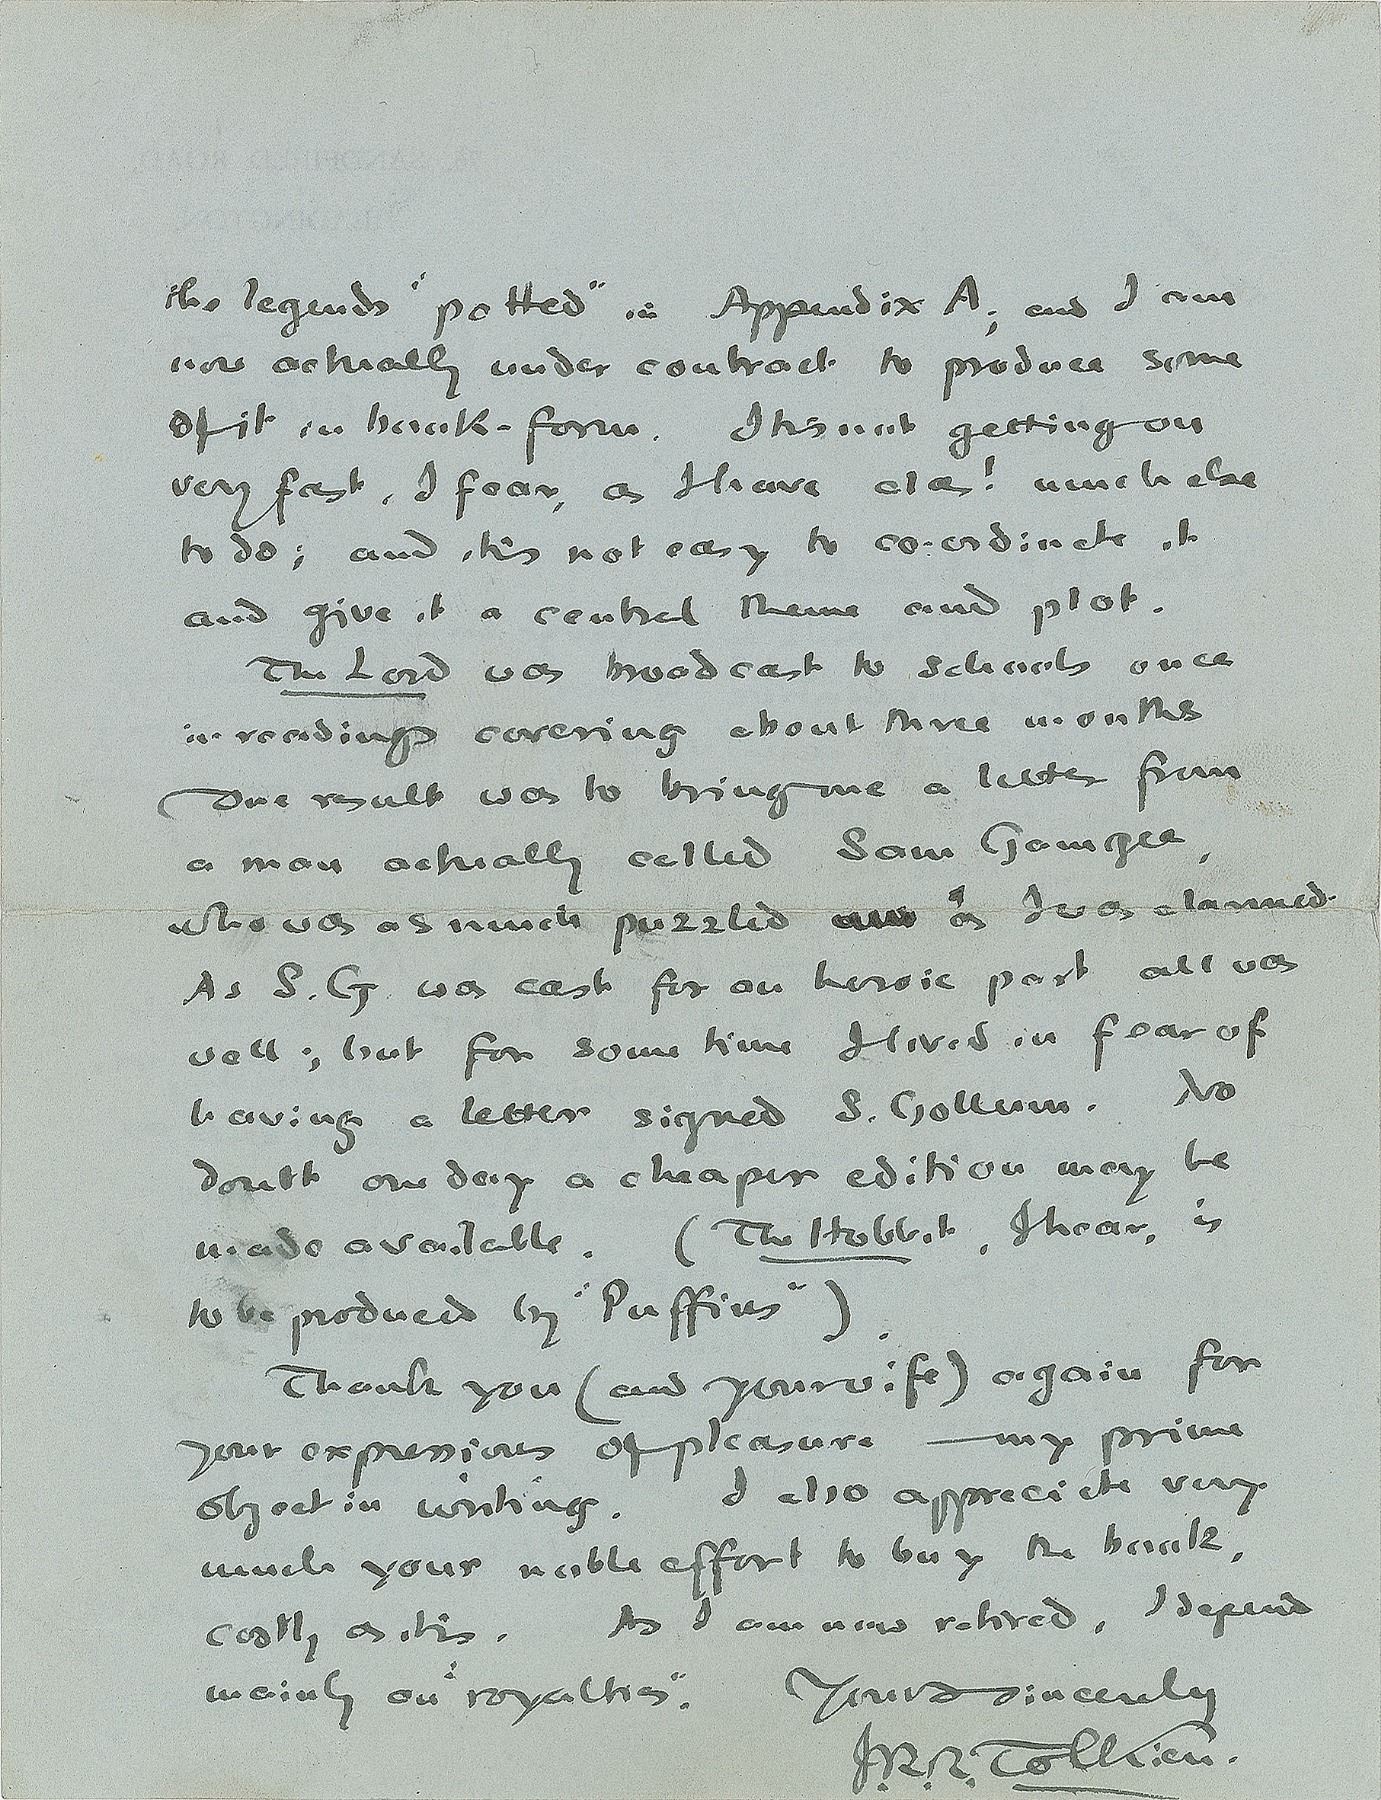 the legends "potted" in Appendix A; and I am
now actually under contract to produce some
of it in book-form. It is not getting on
very fast, I fear, as I have alas! much else
to do; and it is not easy to co-ordinate it
and give it a central theme and plot.
The Lord was broadcast to schools once
in readings covering about three months
One result was to bring me a letter from
a man actually called Sam Gamgee,
who was as much puzzled as I was alarmed.
As S. G. was cast for an heroic part all was
well; but for some time I lived in fear of
having a letter signed S. Gollum. No
doubt one day a cheaper edition may be
made available. (The Hobbit, I hear, is
to be produced by "Puffins").
Thank you (and your wife) again for
your expressions of pleasure — my prime
object in writing. I also appreciate very
much your noble effort to buy the book,
costly as it is. As I am now retired, I depend
mainly on "royalties". Yours sincerely
J.R.R. Tolkien.